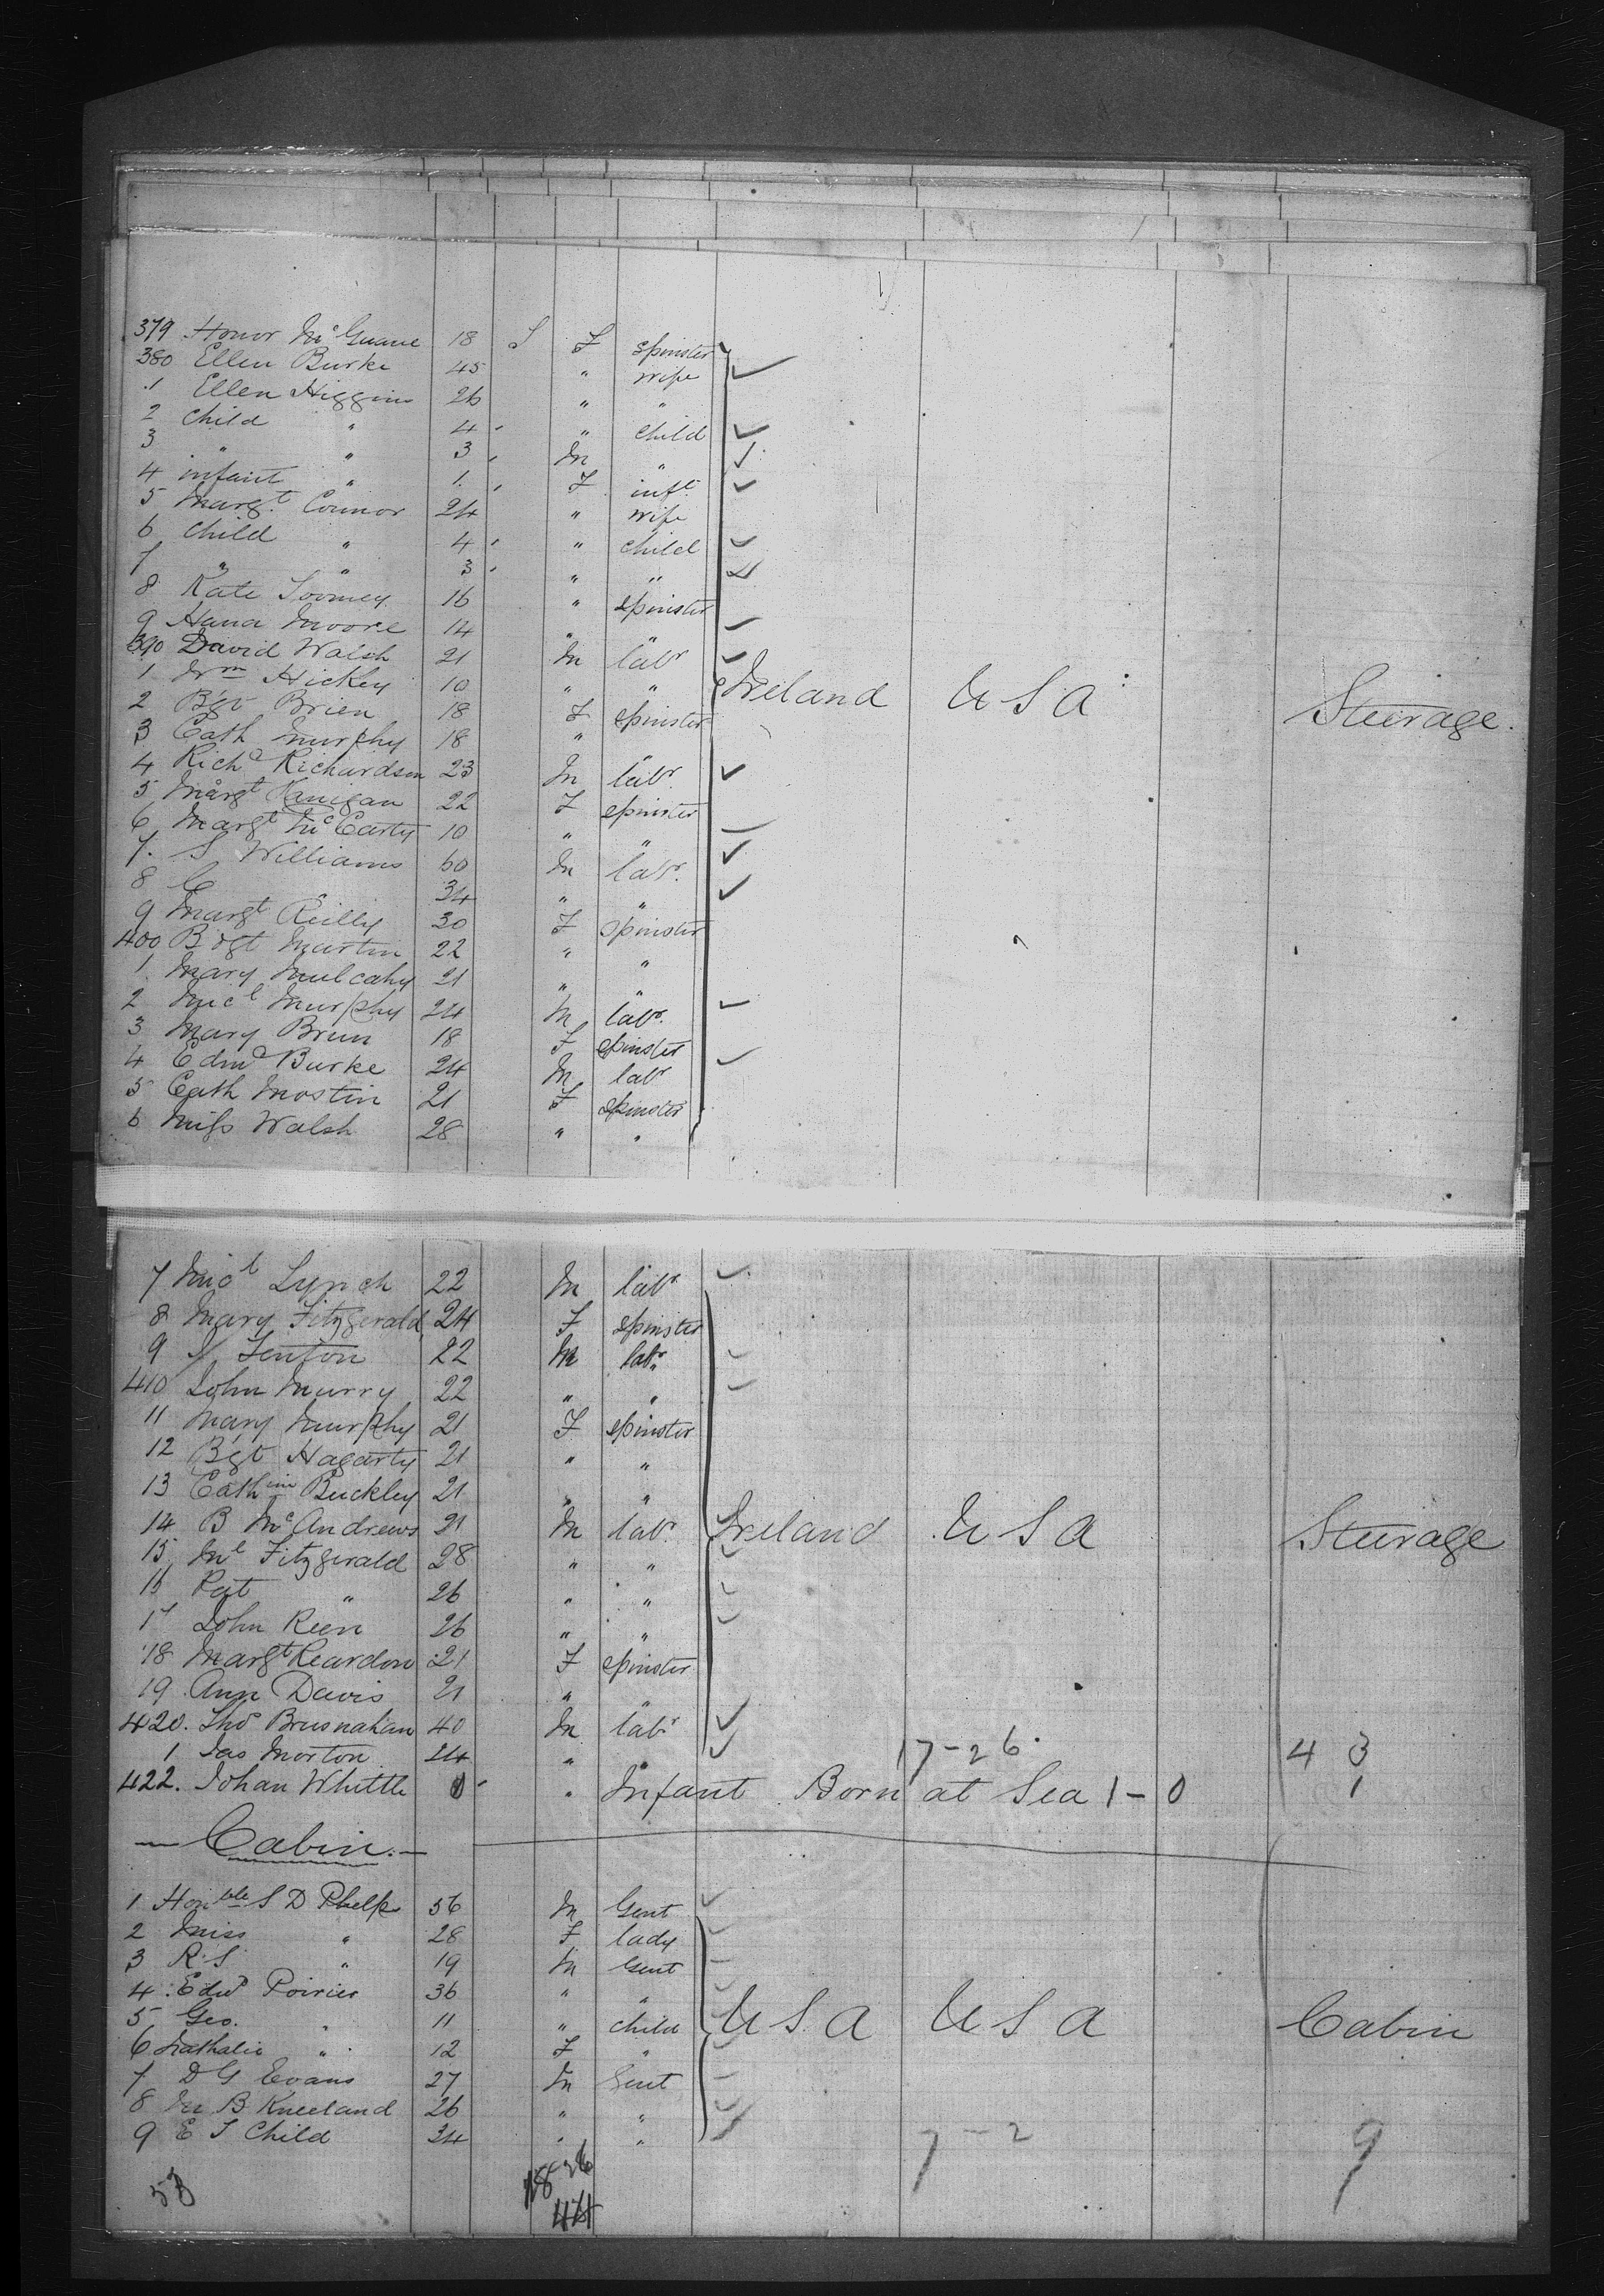 379 Honor McGuane 18 S F spinster
380 Ellen Burke 45 " wife
1 Ellen Higgins 26 " "
2 Child " 4 " child
3 " " 3 M "
4 infant " 1 F inft
5 Margt Connor 24 " wife
6 Child " 4 " child
7 " " 3 " "
8 Kate Toomey 16 " spinster
9 Hana Moore 14 " "
390 David Walsh 21 M labr
1 Wm Hickey 10 " " Ireland USA Steerage.
2 Bgt Brien 18 F spinster
3 Cath Murphy 18 "
4 Richd Richardson 23 M labr
5 Margt 22 F spinster
6 Margt McCarty 10 " "
7. S Williams 60 M labr.
8 C " 34 " "
9 Margt Reilly 30 F spinster
400 Bdgt Martin 22 " "
1 Mary Mulcahy 21 " "
2 Micl Murphy 24 M labr.
3 Mary Brun 18 F spinster
4 Edmd Burke 24 M labr
5 Cath Mostin 21 F spinster
6 Miss Walsh 28 " "
7 Micl Lynch 22 M labr
8 Mary Fitzgerald 24 F spinster
9 Fenton 22 M labr
410 John Murry 22 " "
11 Mary Murphy 21 F spinster
12 Bgt Hagarty 21 " "
13 Cathine Buckley 21 " "
14 B McAndrews 21 M labr Ireland USA Steerage
15 Ml Fitzgerald 28 " "
16 Pat " 26 " "
17 John Reen 26 " "
18 Margt Reardon 21 F spinster
19 Ann Davis 21 " "
420. Thos Brusnahan 40 M labr
1 Jas Morton 24 " " 17-26 43
422. Johan Whittle 0 " Infant Born at Sea 1-0 1
— Cabin. —
1 Honble S D Phelps 56 M Gent
2 Miss " 28 F lady
3 R. S. " 19 M Gent
4 Edwd Poirier 36 " "
5 Geo. " 11 " child USA USA Cabin
6 Nathalie " 12 F "
7 D G Evans 27 M Gent
8 M B Kneeland 26 " "
9 E S Child 34 " " 7-2 9
53 18-26
44